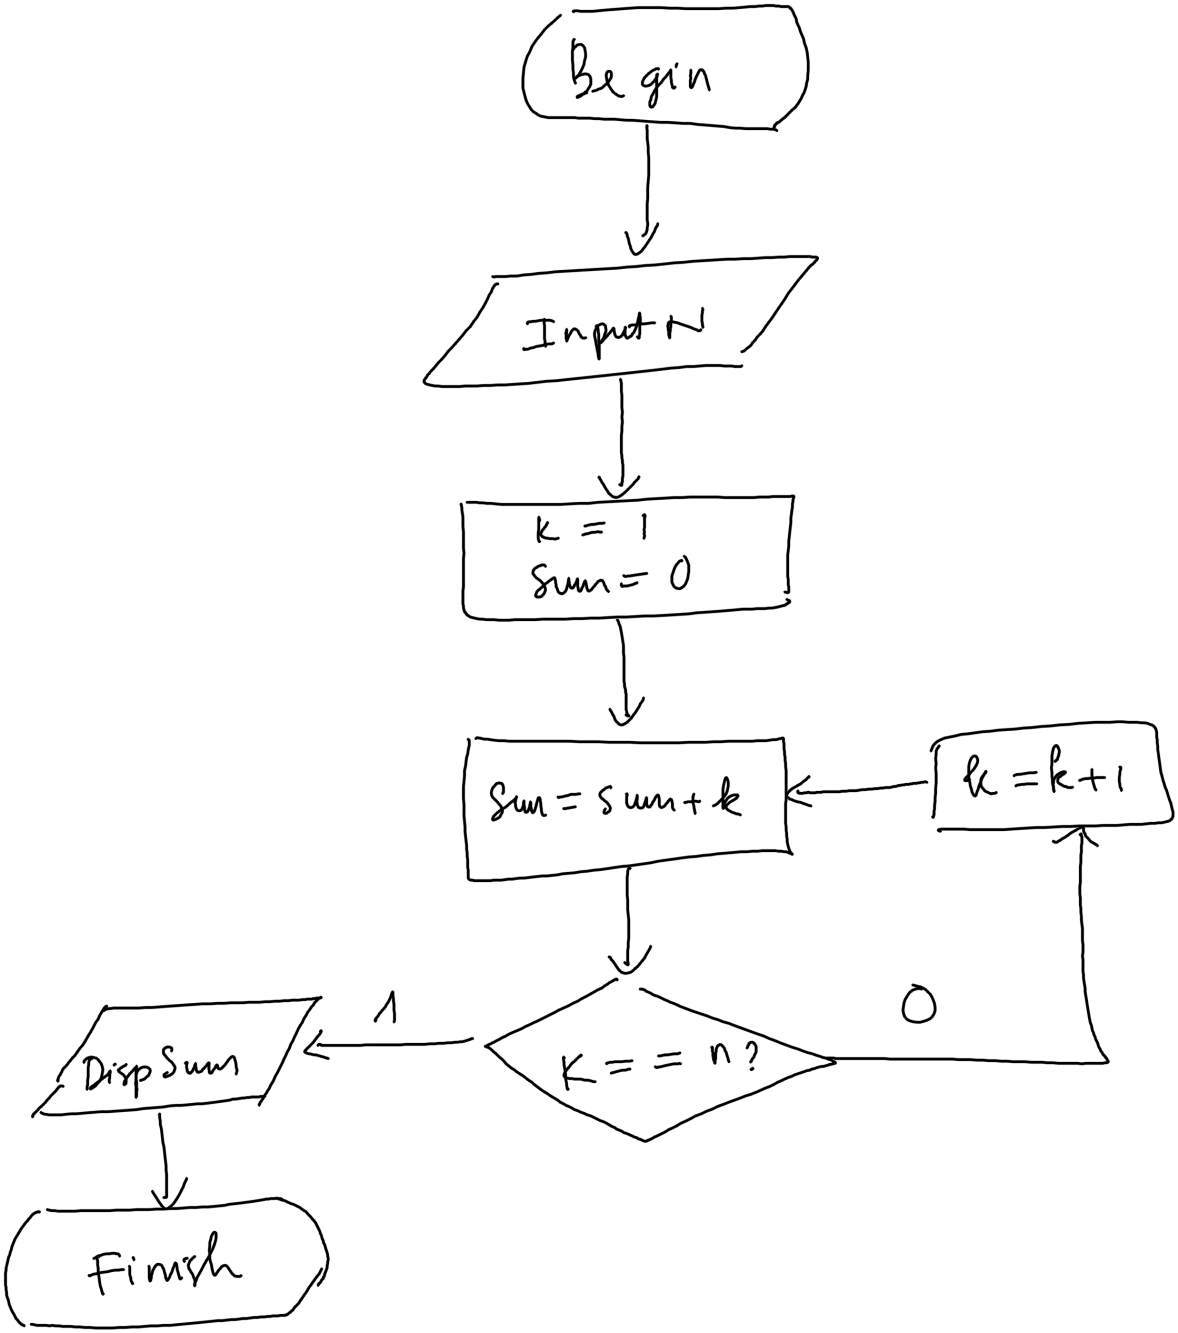 Begin
Input N
k = 1
Sum = 0
Sum = sum + k
k = k + 1
1
0
K = = n ?
Disp Sum
Finish